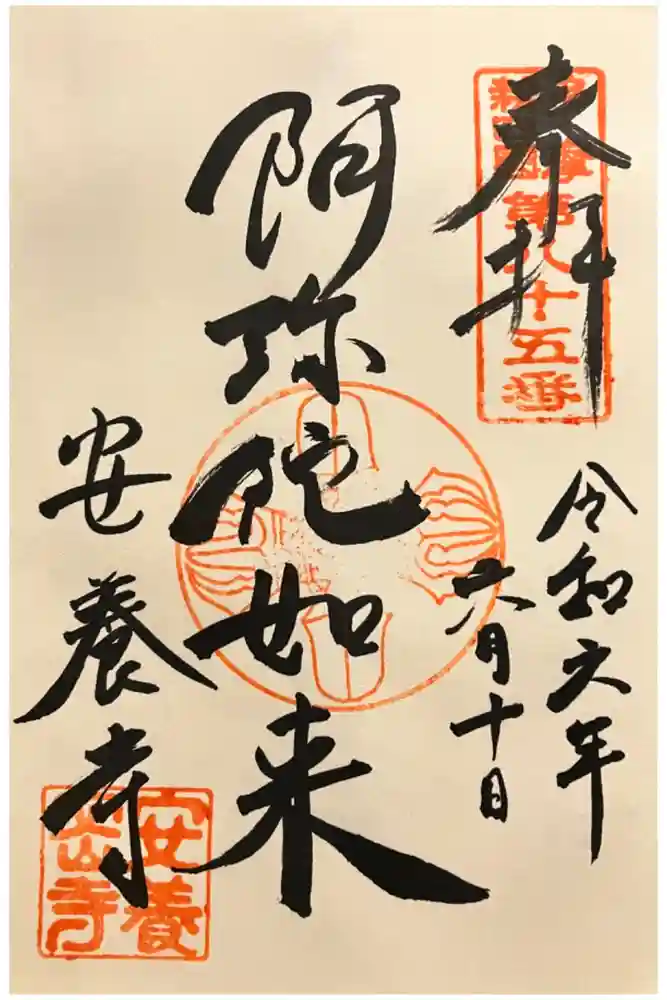 奉拝
第八十五番
令和六年
六月十日
阿弥陀如来
安養寺
安養
寺